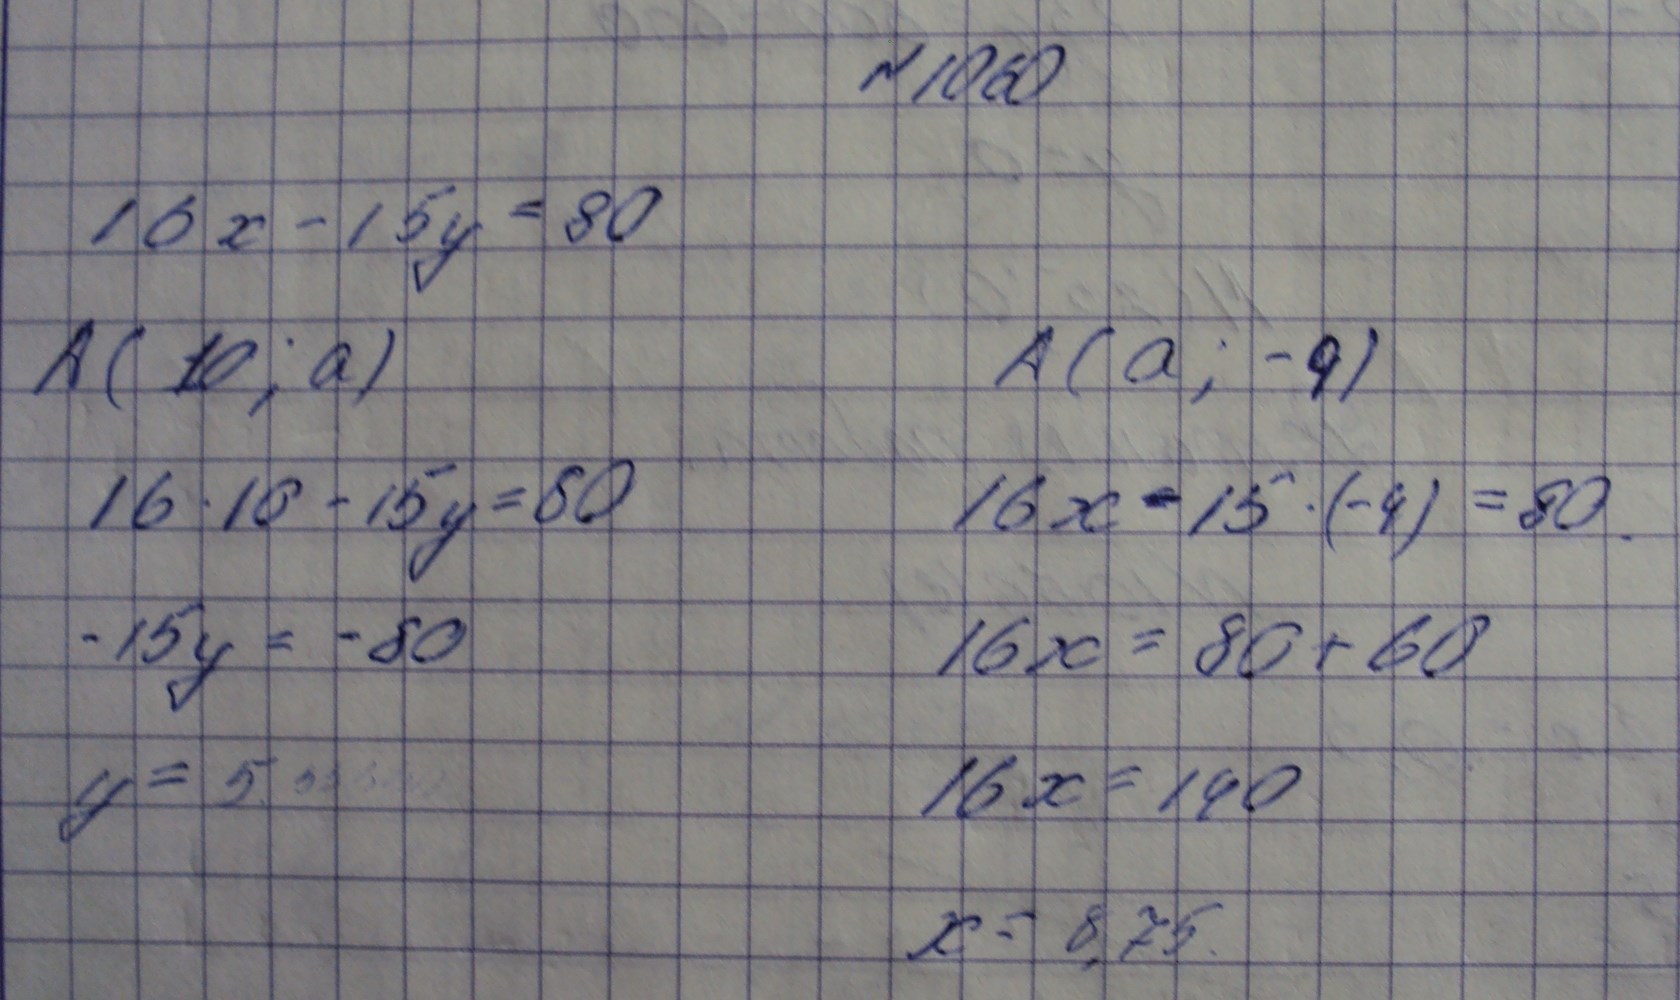 №1060
16x - 15y = 80
A( 10; a)
A( a; -4)
16 · 10 - 15y = 80
16x - 15 · (-4) = 80.
-15y = -80
16x = 80 + 60
y = 5.
16x = 140
x = 8,75.